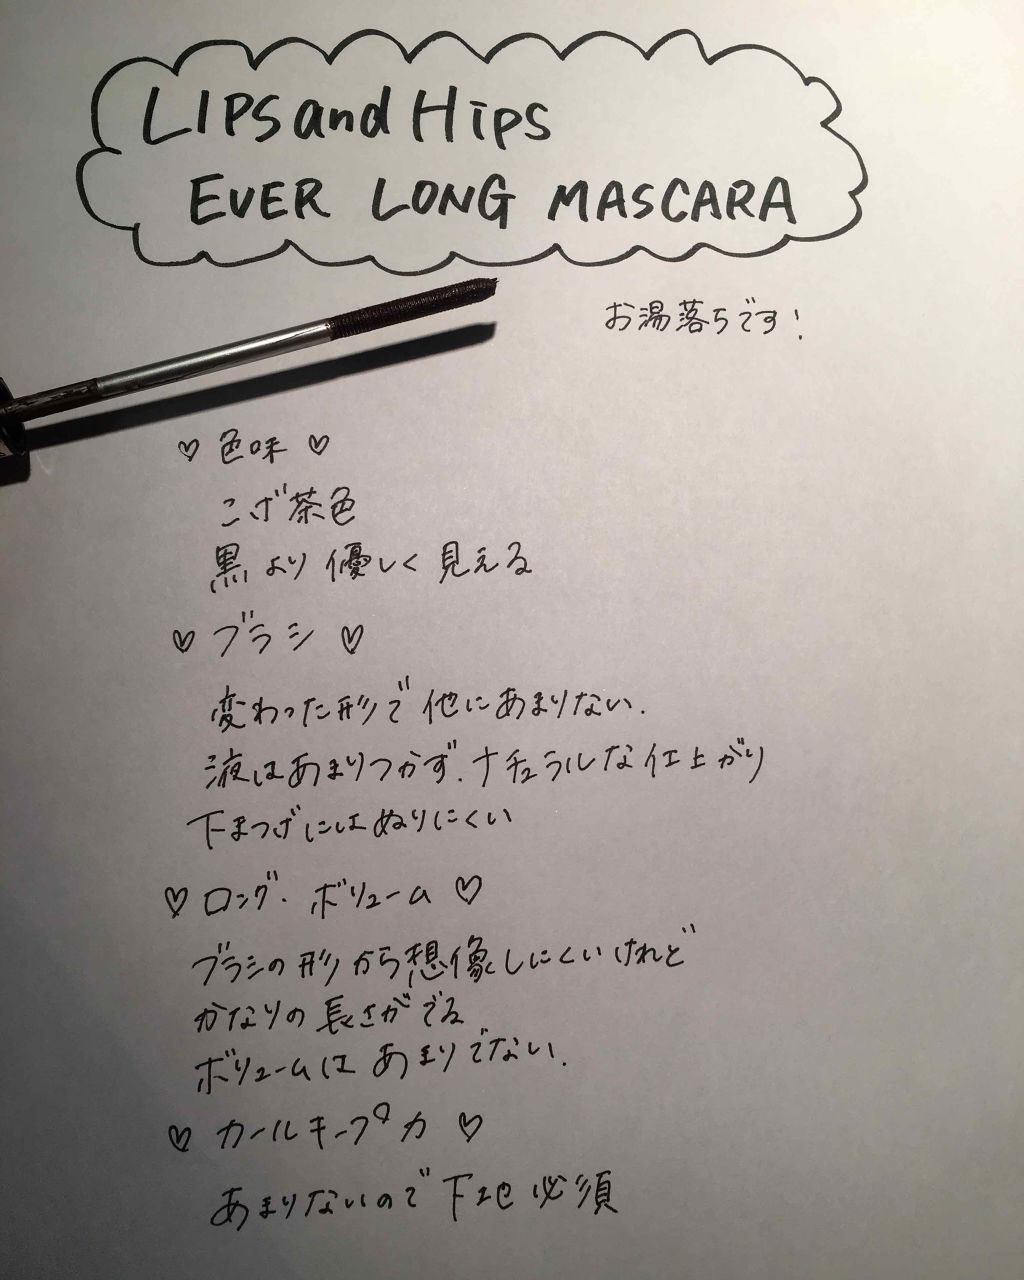 LIPSandHips
EVER LONG MASCARA
お湯落ちです!
♡ 色味 ♡
こげ茶色
黒より優しく見える
♡ ブラシ ♡
変わった形で他にあまりない.
液はあまりつかず.ナチュラルな仕上がり
下まつげにはぬりにくい
♡ ロング.ボリューム ♡
ブラシの形から想像しにくいけれど
かなりの長さがでる
ボリュームはあまりでない.
♡ カールキープ力 ♡
あまりないので下地必須